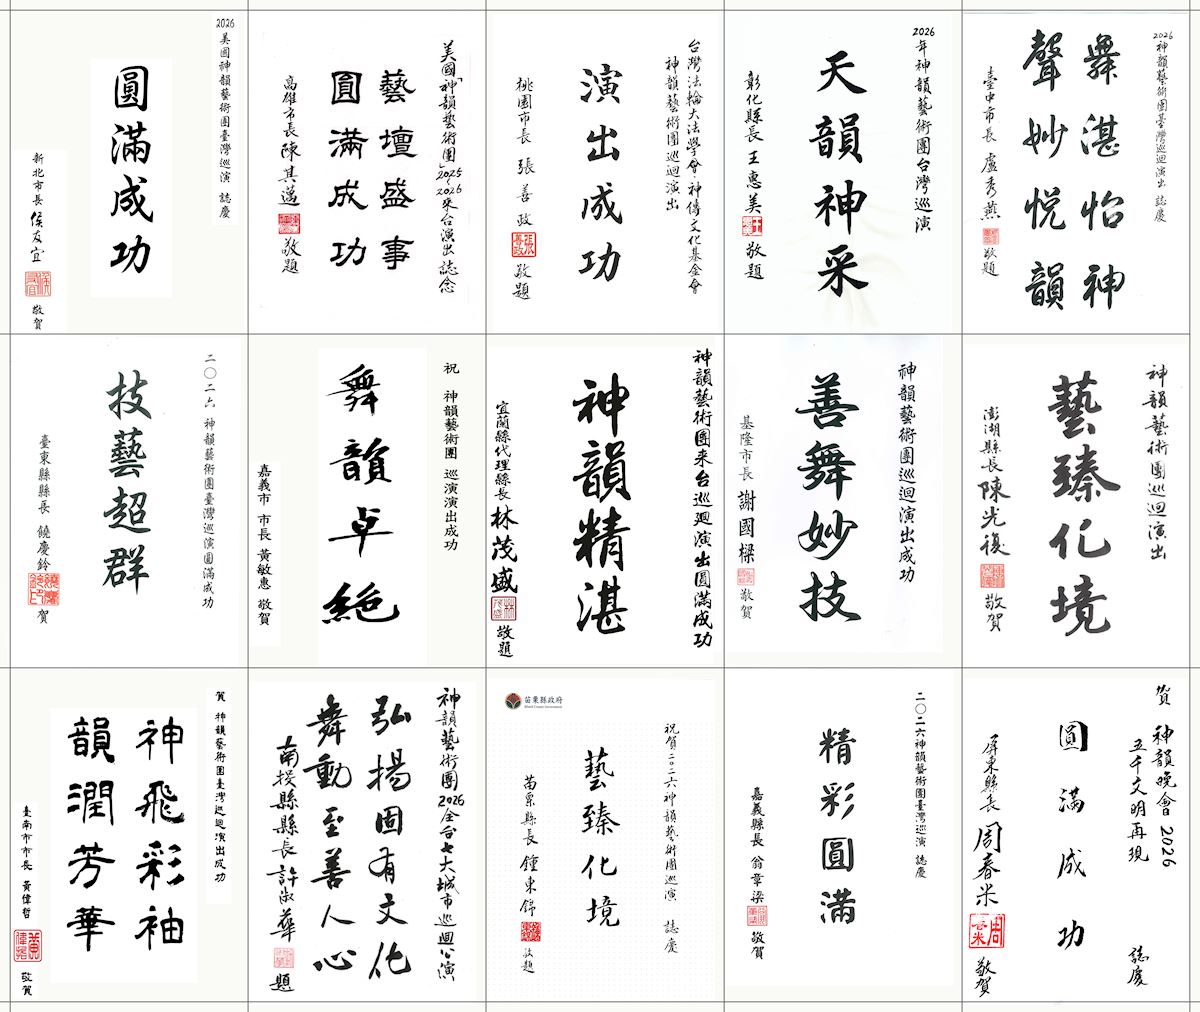 2026美國神韻藝術團臺灣巡演 誌慶
圓滿成功
新北市長 侯友宜 敬賀
美國「神韻藝術團」2025~2026來台演出誌念
藝壇盛事
圓滿成功
高雄市長 陳其邁 敬題
台灣法輪大法學會‧神傳文化基金會
神韻藝術團巡迴演出
演出成功
桃園市長 張善政 敬題
2026年神韻藝術團台灣巡演
天韻神采
彰化縣長 王惠美 敬題
2026神韻藝術團臺灣巡迴演出 誌慶
舞湛怡神
聲妙悅韻
臺中市長 盧秀燕 敬題
二〇二六神韻藝術團臺灣巡演圓滿成功
技藝超群
臺東縣縣長 饒慶鈴 賀
祝 神韻藝術團 巡演演出成功
舞韻卓絕
嘉義市 市長 黃敏惠 敬賀
神韻藝術團來台巡迴演出圓滿成功
神韻精湛
宜蘭縣代理縣長 林茂盛 敬題
神韻藝術團巡迴演出成功
善舞妙技
基隆市長 謝國樑 敬賀
神韻藝術團巡迴演出
藝臻化境
澎湖縣長 陳光復 敬賀
賀 神韻藝術團臺灣巡迴演出成功
神飛彩袖
韻潤芳華
臺南市市長 黃偉哲 敬賀
神韻藝術團2026全台七大城市巡迴公演
弘揚固有文化
舞動至善人心
南投縣縣長 許淑華 題
苗栗縣政府
祝賀二〇二六神韻藝術團巡演 誌慶
藝臻化境
苗栗縣長 鍾東錦 敬題
二〇二六神韻藝術團臺灣巡演 誌慶
精彩圓滿
嘉義縣長 翁章梁 敬賀
賀 神韻晚會 2026
五千文明再現 誌慶
圓滿成功
屏東縣長 周春米 敬賀